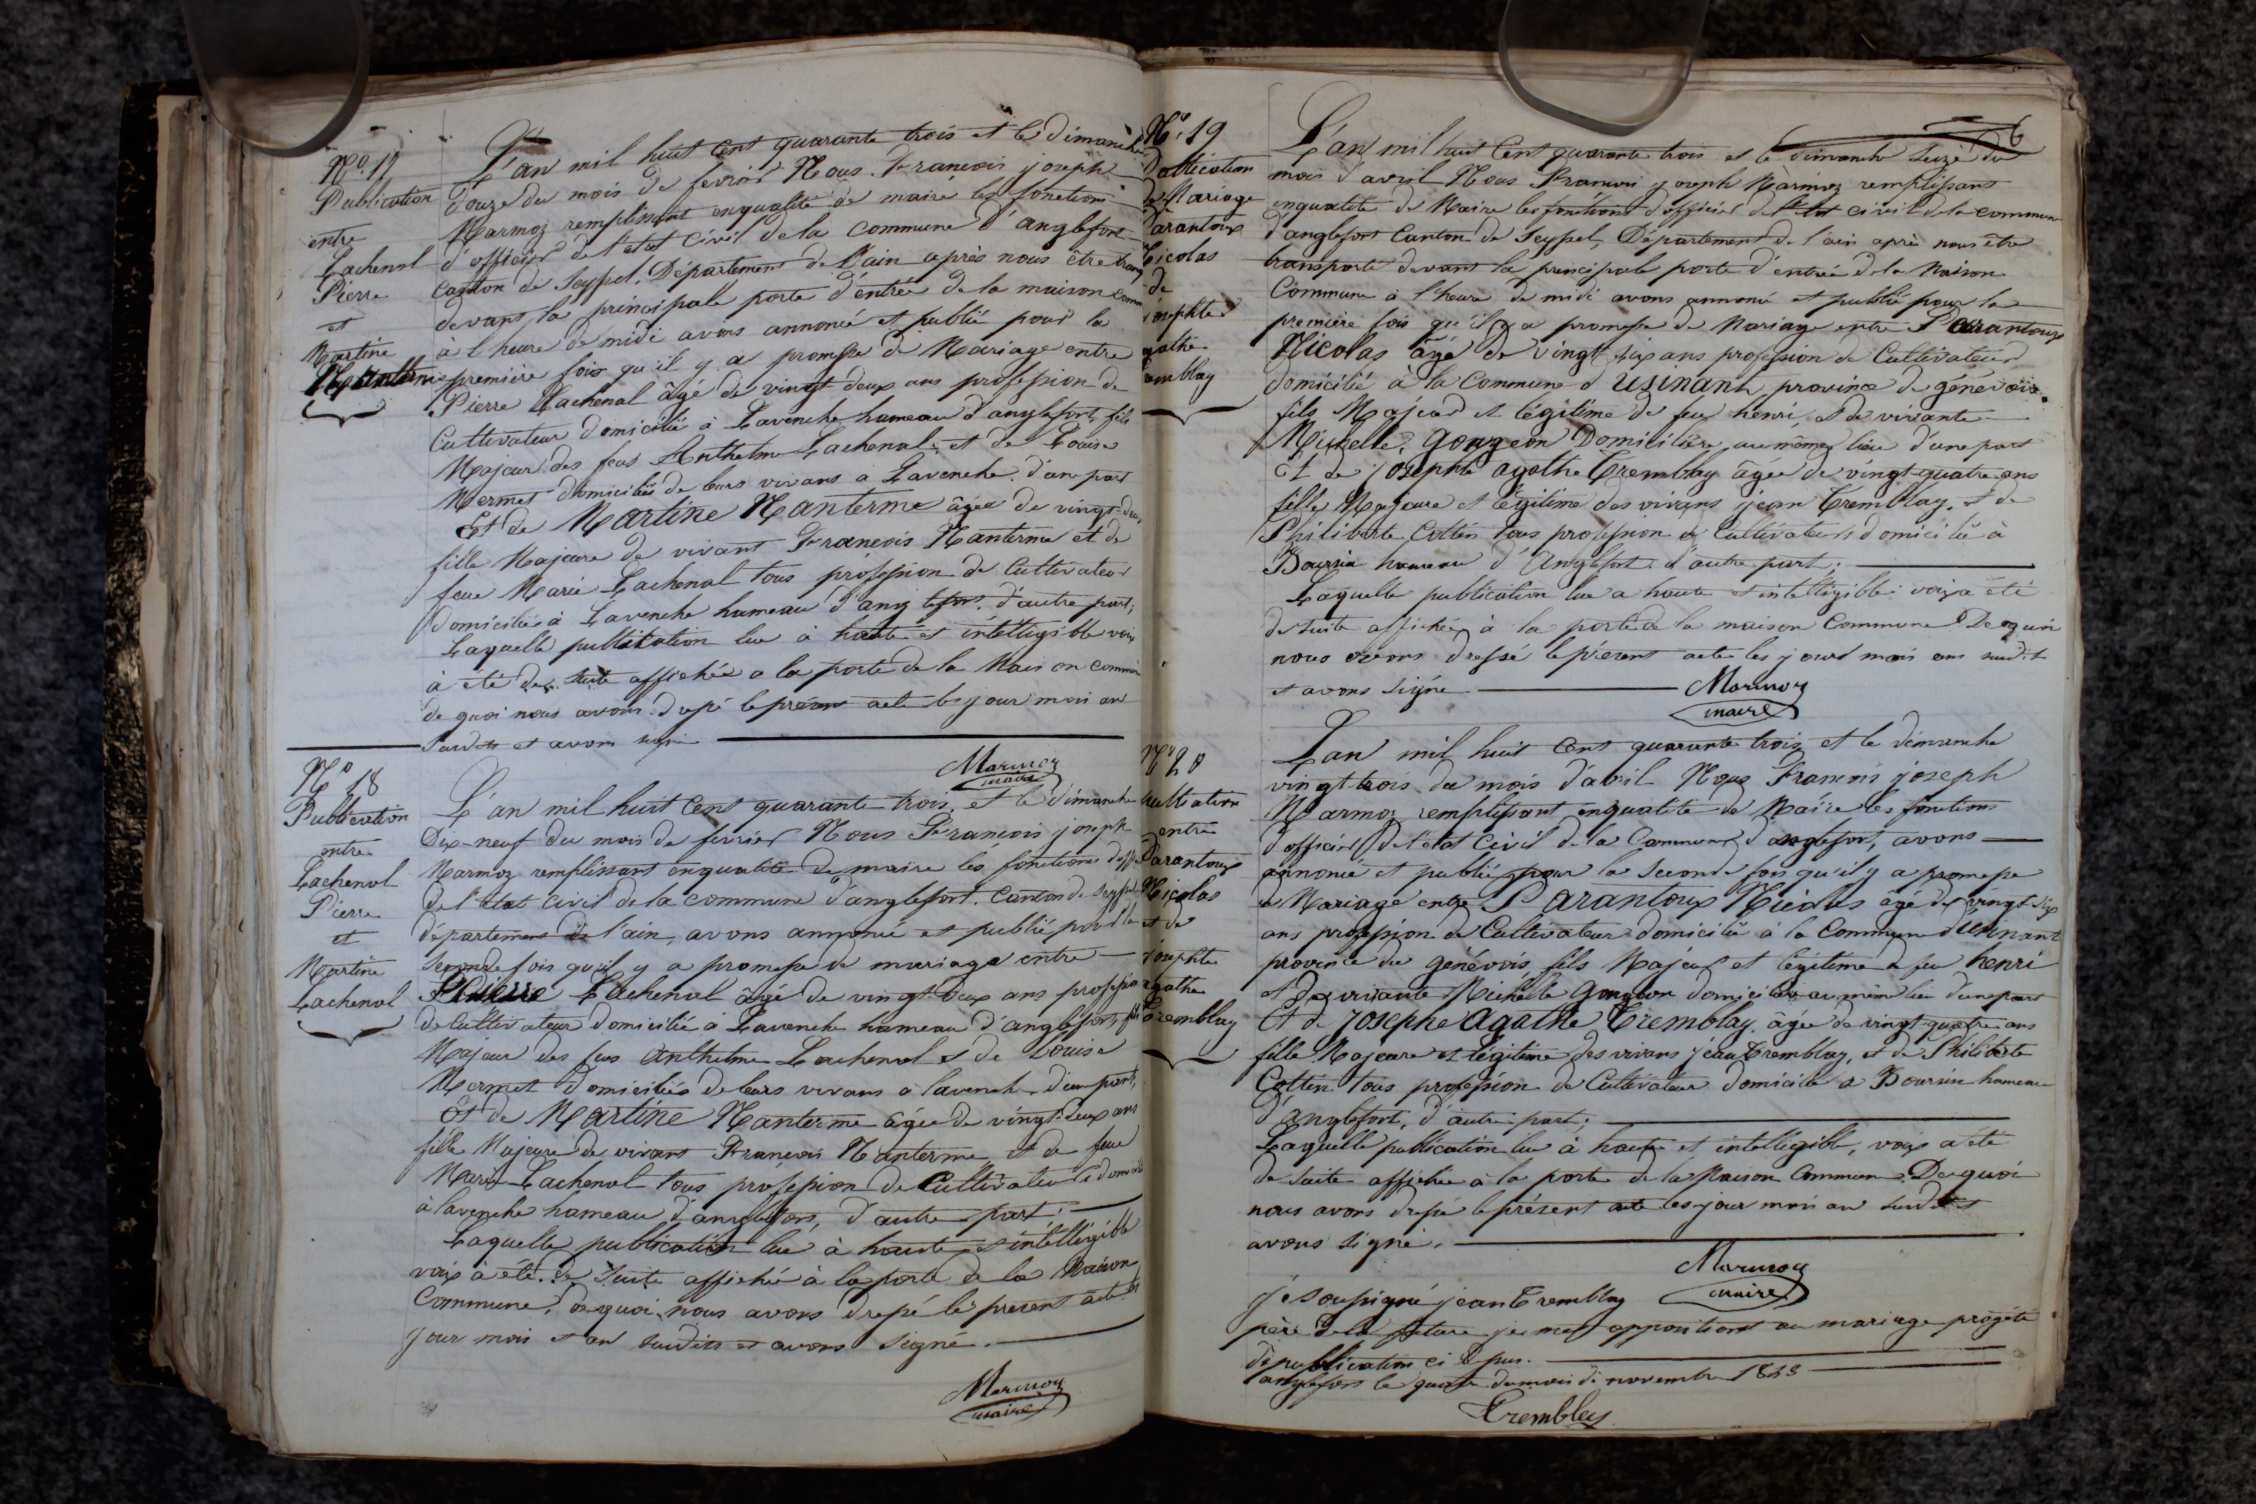 N° 17
Publication
entre
Lachenal
Pierre
et
Martine
Nanterme
L'an mil huit cent quarante trois et le dimanche
douze du mois de fevrier Nous Francois joseph
Marmoz remplissant enqualité de maire les fonctions
d'officier de l'etat civil dela commune d'anglefort
canton de Seyssel, Département de l'ain après nous être
devant la principale porte d'entrée de la maison
à l'heure de midi avons annoncé et publié pour la
première fois qu'il y a promesse de Mariage entre
Pierre Lachenal âgé de vingt deux ans profession de
Cultivateur domicilié à Lavenche hameau d'anglefort, fils
Majeur des feus Anthelme Lachenal et de Louise
Mermet domiciliés de leurs vivans a Lavenche. d'un part
Et de Martine Nanterme âgée de vingt-deux
fille Majeure de vivant Francois Nanterme et de
feue Marie Lachenal tous profession de Cultivateur
domiciliés à Lavenche hameau d'anglefort. d'autre part;
Laquelle publication lue à haute et intelligible voix
à été de suite affichée a la porte de la Maison commune
de quoi nous avons dressé le présent acte les jour mois an
susdits et avons signé
Marmoz
maire
N° 18
Publication
entre
Lachenal
Pierre
et
Martine
Lachenal
L'an mil huit cent quarante trois, et le dimanche
Dix-neuf du mois de fevrier Nous Francois joseph
Marmoz remplissant enqualité de maire les fonctions
de l'état civil de la commune d'anglefort. Canton de Seyssel
département de l'ain, avons annoncé et publié pour la
seconde fois qu'il y a promesse de mariage entre
Pierre Lachenal âgé de vingt-deux ans profession
de Cultivateur domicilié à Lavenche hameau d'anglefort, fils
Majeur des feus Anthelme Lachenal et de Louise
Mermet domiciliés de leurs vivans à lavenche d'un part,
Et de Martine Nanterme âgée de vingt-deux ans
fille Majeure de vivant Francois Nanterme et de feue
Marie Lachenal tous profession de Cultivateurs
à lavenche hameau d'anglefort, d'autre part.
Laquelle publication lue à haute et intelligible
voix à été de suite affichée à la porte de la Maison
Commune, de quoi nous avons dressé le présent acte les
jour mois et an susdits et avons signé.
Marmoz
maire
N° 19
Publication
de Mariage
Parantoux
Nicolas
de
josephte
agathe
Tremblay
6
L'an mil huit Cent quarante trois et le dimanche seize du
mois d'avril Nous Francois joseph Marmoz remplissant
enqualité de Maire les fonctions d'officier de l'état civil de la commune
d'anglefort Canton de Seyssel, Département de l'ain après nous être
transporté devant la principale porte d'entrée de la Maison
Commune à l'heure de midi avons annoncé et publié pour la
première fois qu'il y a promesse de Mariage entre Parantoux
Nicolas âgé de vingt six ans profession de Cultivateur
domicilié à la Commune d'Usinant province de génévois.
fils Majeur et légitime de feu henri, et de vivante
Michelle Gonzeon Domiciliée au même lieu d'une part
Et de josephte agathe Tremblay âgée de vingt-quatre ans
fille Majeure et légitime des vivans jean Tremblay, et de
Philiberte Cottin tous profession de Cultivateurs domicilié à
Boursin hameau d'Anglefort d'autre part;
Laquelle publication lue a haute et intelligible voix a été
de suite affichée à la porte de la maison Commune De quoi
nous avons dressé le présent acte les jour mois ans susdits
et avons signé
Marmoz
maire
N° 20
Publication
entre
Parantoux
Nicolas
et de
josephte
agathe
Tremblay
L'an mil huit Cent quarante trois et le dimanche
vingt-trois du mois d'avril Nous Francois joseph
Marmoz remplissant enqualité de Maire les fonctions
d'officier de l'état Civil de la Commune d'anglefort, avons
annoncé et publié pour la seconde fois qu'il y a promesse
de Mariage entre Parantoux Nicolas âgé de vingt-six
ans profession de Cultivateur domicilié à la Commune d'Usinant
province de génévois, fils Majeur et légitime de feu henri
et de vivante Michelle Gonzeon domiciliée au même lieu d'une part
Et de Josephe Agathe Tremblay, âgée de vingt-quatre ans
fille Majeure et légitime des vivans jean Tremblay, et de Philiberte
Cottin tous profession de Cultivateur domicilié à Boursin hameau
d'anglefort, d'autre part;
Laquelle publication lue à haute et intelligible, voix a été
de suite affichée à la porte de la Maison Commune. De quoi
nous avons dressé le présent acte les jour mois an susdits et
avons signé.
Marmoz
maire
je soussigné jean Tremblay
père de la future je mes oppositions au mariage progété
de publication ci dessus.
anglefort le quatre du mois de novembre 1843
Tremblay